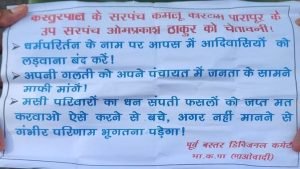 कस्तुरपाल के सरपंच कमलू कारटाम पारापुर के
उप सरपंच ओमप्रकाश ठाकुर को चेतावनी!
➢ धर्मपरिर्तन के नाम पर आपस में आदिवासियों को
लड़वाना बंद करें!
➢ अपनी गलती को अपने पंचायत में जनता के सामने
माफी मांगें!
➢ मसी परिवारों का धन संपती फसलों को जप्त मत
करवाओ ऐसे करने से बचे, अगर नहीं मानने से
गंभीर परिणाम भूगतना पड़ेगा!
पूर्व बस्तर डिविजनल कमेटी
भा.क.पा (माओवादी)